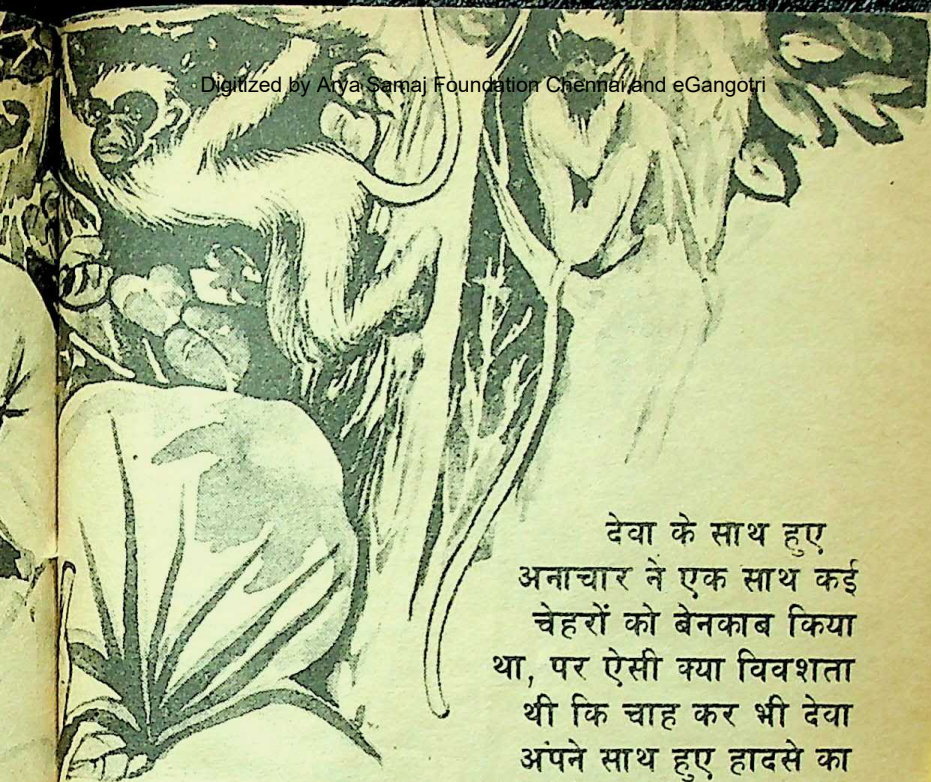 Digitized by Arya Samaj Foundation Chennai and eGangotri
देवा के साथ हुए
अनाचार ने एक साथ कई
चेहरों को बेनकाब किया
था, पर ऐसी क्या विवशता
थी कि चाह कर भी देवा
अपने साथ हुए हादसे का